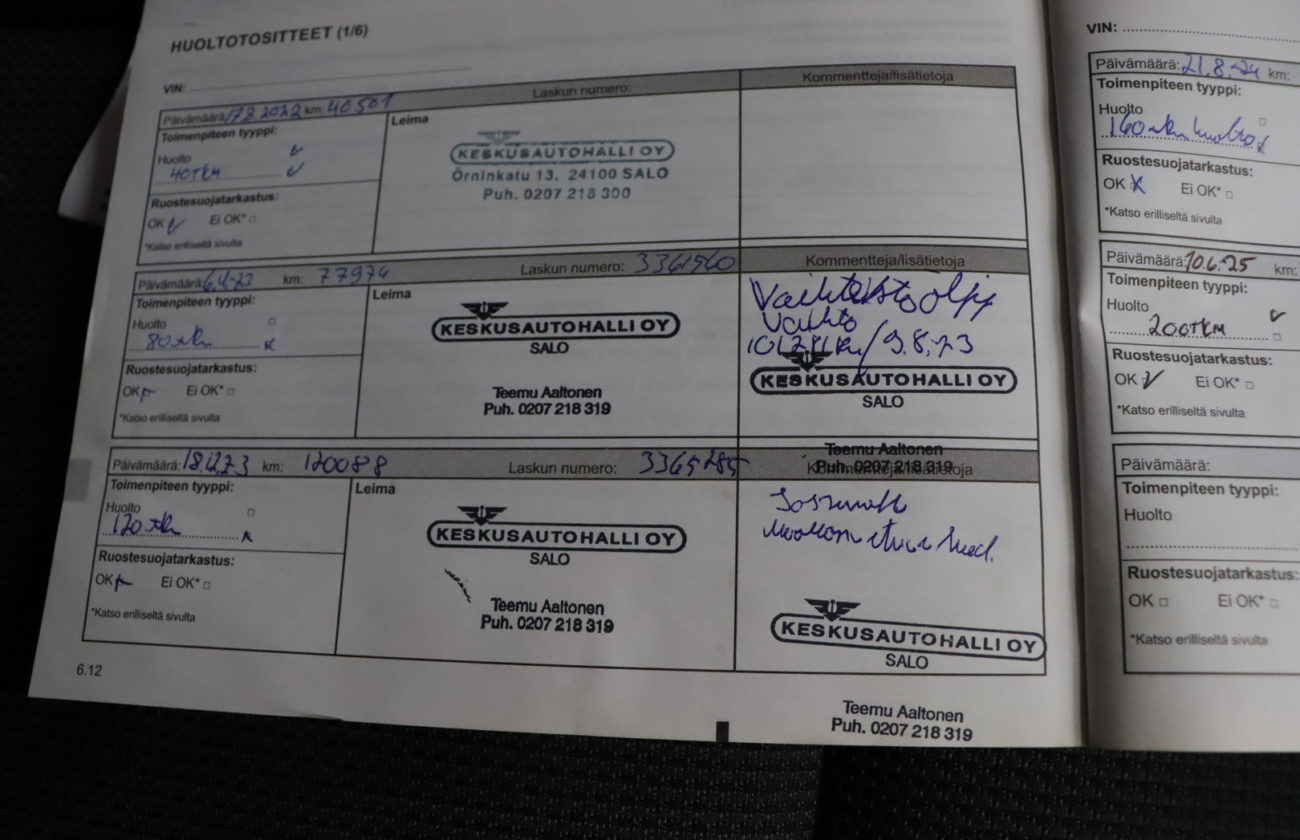 HUOLTOTOSITTEET (1/6)
VIN:
Päivämäärä: km: 40 501 Laskun numero: Kommentteja/lisätietoja
Toimenpiteen tyyppi:
Huolto
40TKM
Ruostesuojatarkastus:
OK Ei OK*
*Katso erilliseltä sivulta
Leima
KESKUSAUTOHALLI OY
Örninkatu 13, 24100 SALO
Puh. 0207 218 300
Päivämäärä: 6.4.23 km: 77974 Laskun numero: 3361560 Kommentteja/lisätietoja
Toimenpiteen tyyppi:
Huolto
80tkm
Ruostesuojatarkastus:
OK Ei OK*
*Katso erilliseltä sivulta
Leima
KESKUSAUTOHALLI OY
SALO
Teemu Aaltonen
Puh. 0207 218 319
Vaihteisto öljy
vaihto
/ 9.8.23
KESKUSAUTOHALLI OY
SALO
Teemu Aaltonen
Puh. 0207 218 319
Päivämäärä: km: 120088 Laskun numero: 3365285 Kommentteja/lisätietoja
Toimenpiteen tyyppi:
Huolto
120tkm
Ruostesuojatarkastus:
OK Ei OK*
*Katso erilliseltä sivulta
Leima
KESKUSAUTOHALLI OY
SALO
Teemu Aaltonen
Puh. 0207 218 319
KESKUSAUTOHALLI OY
SALO
Teemu Aaltonen
Puh. 0207 218 319
6.12
VIN:
Päivämäärä: 21.8.24 km:
Toimenpiteen tyyppi:
Huolto
160tkm huolto
Ruostesuojatarkastus:
OK Ei OK*
*Katso erilliseltä sivulta
Päivämäärä: 10.6.25 km:
Toimenpiteen tyyppi:
Huolto
200TKM
Ruostesuojatarkastus:
OK Ei OK*
*Katso erilliseltä sivulta
Päivämäärä:
Toimenpiteen tyyppi:
Huolto
Ruostesuojatarkastus:
OK Ei OK*
*Katso erilliseltä sivulta